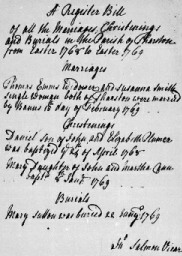 A Register Bill
of all the Marriages, Christenings
and Burials in the Parish of Sharston
from Easter 1768 to Easter 1769
Marriages
Thomas Emms Widower and Susanna Smith
Single Woman both of Sharston were married
by Banns 13 day of February 1769
Christenings
Daniel Son of John and Elizabeth Plumer
was baptized ye 24 of April 1768
Mary Daughter of John and Martha
bapt 1769
Burials
Mary Sutton was buried 22 1769
Jn Salmon Vicar